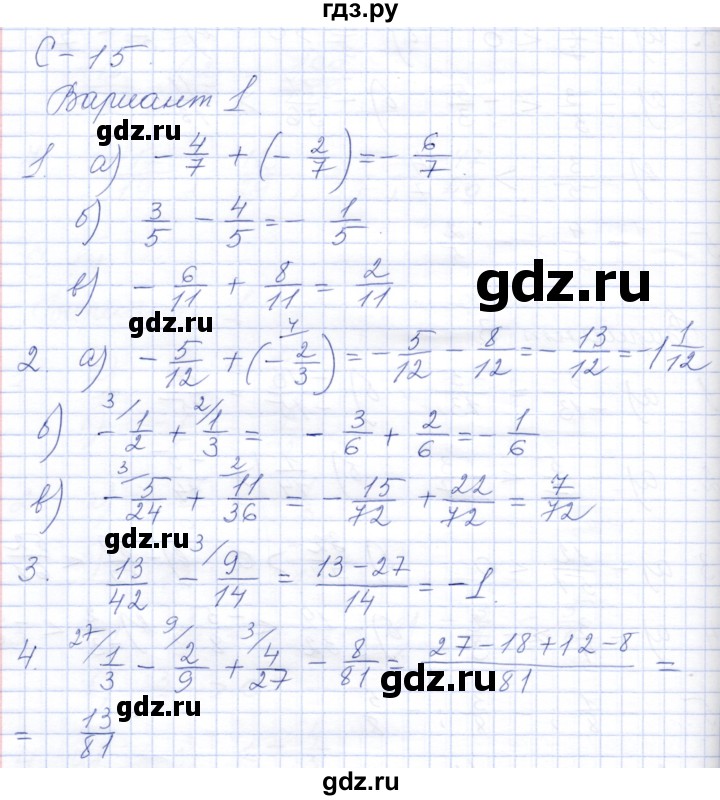 гдз.ру
С-15.
Вариант 1.
gdz.ru
1. а) -4/7 + (-2/7) = -6/7
б) 3/5 - 4/5 = -1/5
gdz.ru
в) -6/11 + 8/11 = 2/11
gdz.ru
4/
2. а) -5/12 + (-2/3) = -5/12 - 8/12 = -13/12 = -1 1/12
3/ 2/
б) -1/2 + 1/3 = -3/6 + 2/6 = -1/6
3/ 2/
в) -5/24 + 11/36 = -15/72 + 22/72 = 7/72
gdz.ru
3/
3. 13/42 - 9/14 = (13-27)/14 = -1.
27/ 9/ 3/
4. 1/3 - 2/9 + 4/27 - 8/81 = (27-18+12-8)/81 =
gdz.ru
= 13/81
gdz.ru
gdz.ru